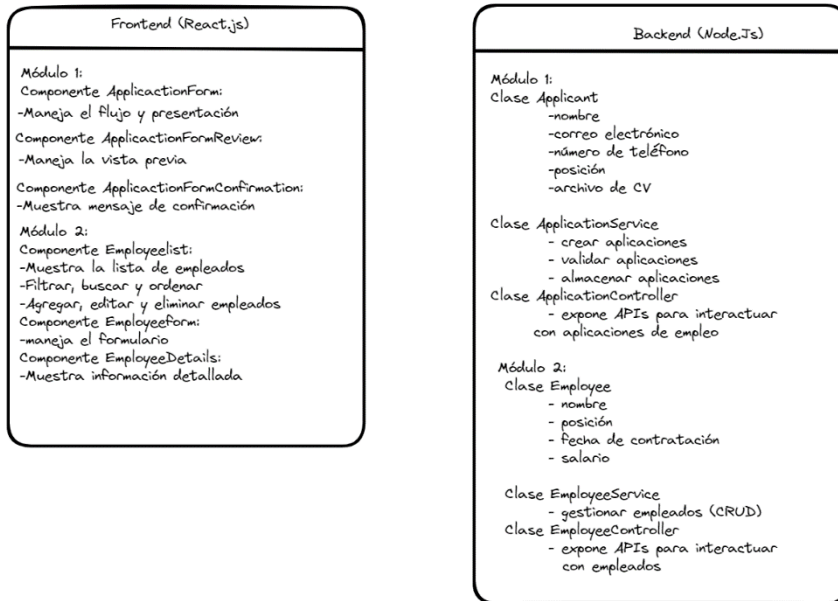 Frontend (React.js)
Módulo 1:
Componente ApplicactionForm:
-Maneja el flujo y presentación
Componente ApplicactionFormReview:
-Maneja la vista previa
Componente ApplicactionFormConfirmation:
-Muestra mensaje de confirmación
Módulo 2:
Componente Employeelist:
-Muestra la lista de empleados
-Filtrar, buscar y ordenar
-Agregar, editar y eliminar empleados
Componente Employeeform:
-maneja el formulario
Componente EmployeeDetails:
-Muestra información detallada
Backend (Node.Js)
Módulo 1:
Clase Applicant
-nombre
-correo electrónico
-número de teléfono
-posición
-archivo de CV
Clase ApplicationService
- crear aplicaciones
- validar aplicaciones
- almacenar aplicaciones
Clase ApplicationController
- expone APIs para interactuar
con aplicaciones de empleo
Módulo 2:
Clase Employee
- nombre
- posición
- fecha de contratación
- salario
Clase EmployeeService
- gestionar empleados (CRUD)
Clase EmployeeController
- expone APIs para interactuar
con empleados